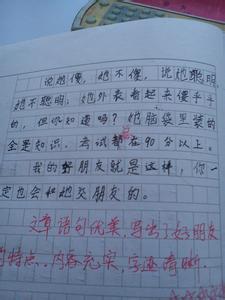 说她傻,她不傻,说她聪明,
她不聪明,她外表看起来傻乎乎
的,但你知道吗?她脑袋里装的
全是知识,考试都在90分以上。
我的好朋友就是这样,你一
定也会和她交朋友的。
文章语句优美,写出了好朋友
的特点,内容充实,字迹清晰.